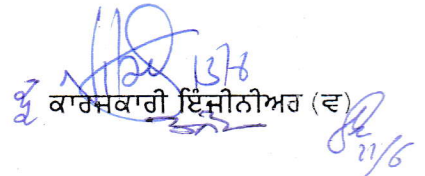 13/8
ਕਾਰਜਕਾਰੀ ਇੰਜੀਨੀਅਰ (ਵ)
21/6